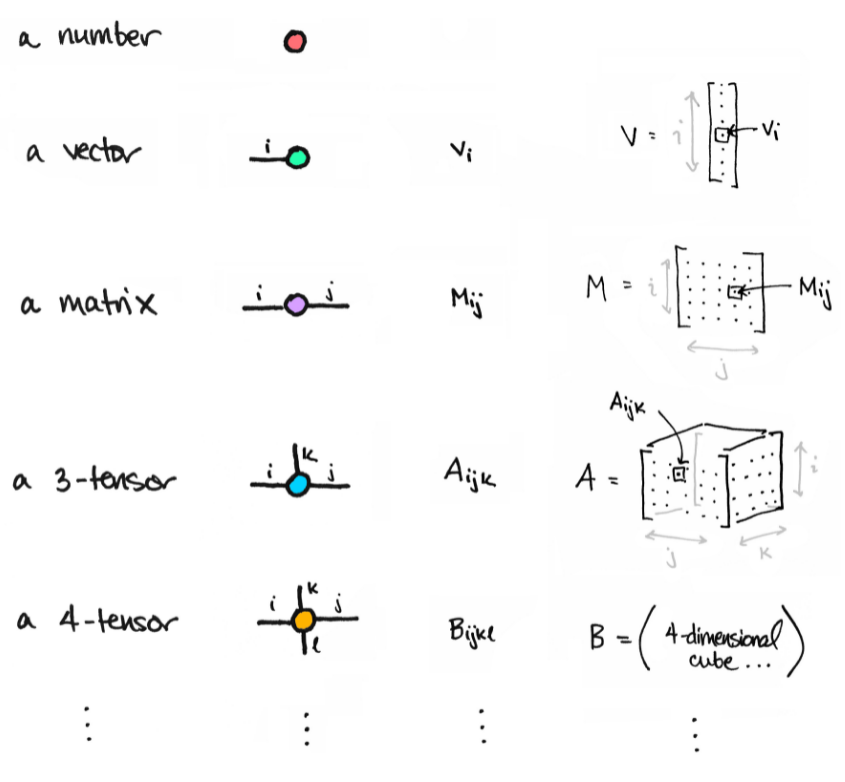 a number
a vector i Vi V = i Vi
a matrix i j Mij M = i Mij
j
Aijk
a 3-tensor i k j Aijk A = i
j k
a 4-tensor i k j l Bijkl B = ( 4-dimensional
cube... )
⋮ ⋮ ⋮ ⋮